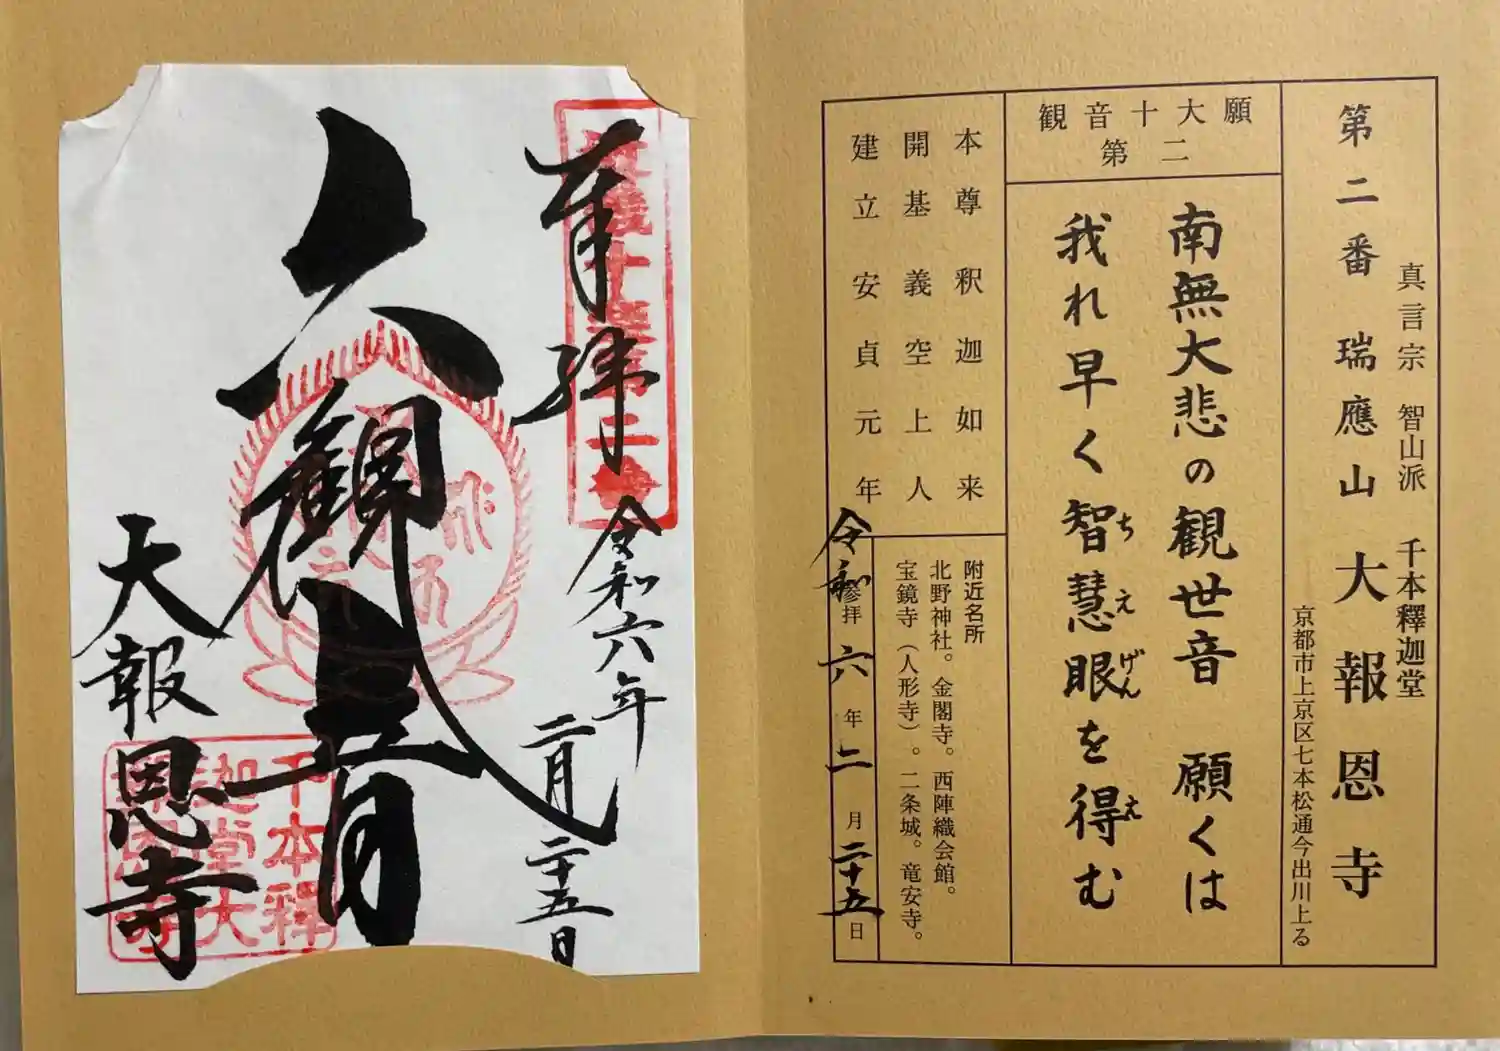 真言宗 智山派 千本釋迦堂
第二番 瑞應山 大報恩寺
京都市上京区七本松通今出川上る
観音十大願
第二
南無大悲の観世音 願くは
我れ早く智慧眼を得む
ちえげん
え
本尊 釈迦如来
開基 義空上人
建立 安貞元年
附近名所
北野神社。金閣寺。西陣織会館。
宝鏡寺（人形寺）。二条城。竜安寺。
参拝
令和六年二月二十五日
奉拝
令和六年二月二十五日
六観音
大報恩寺
千本釋
迦堂大
報恩寺